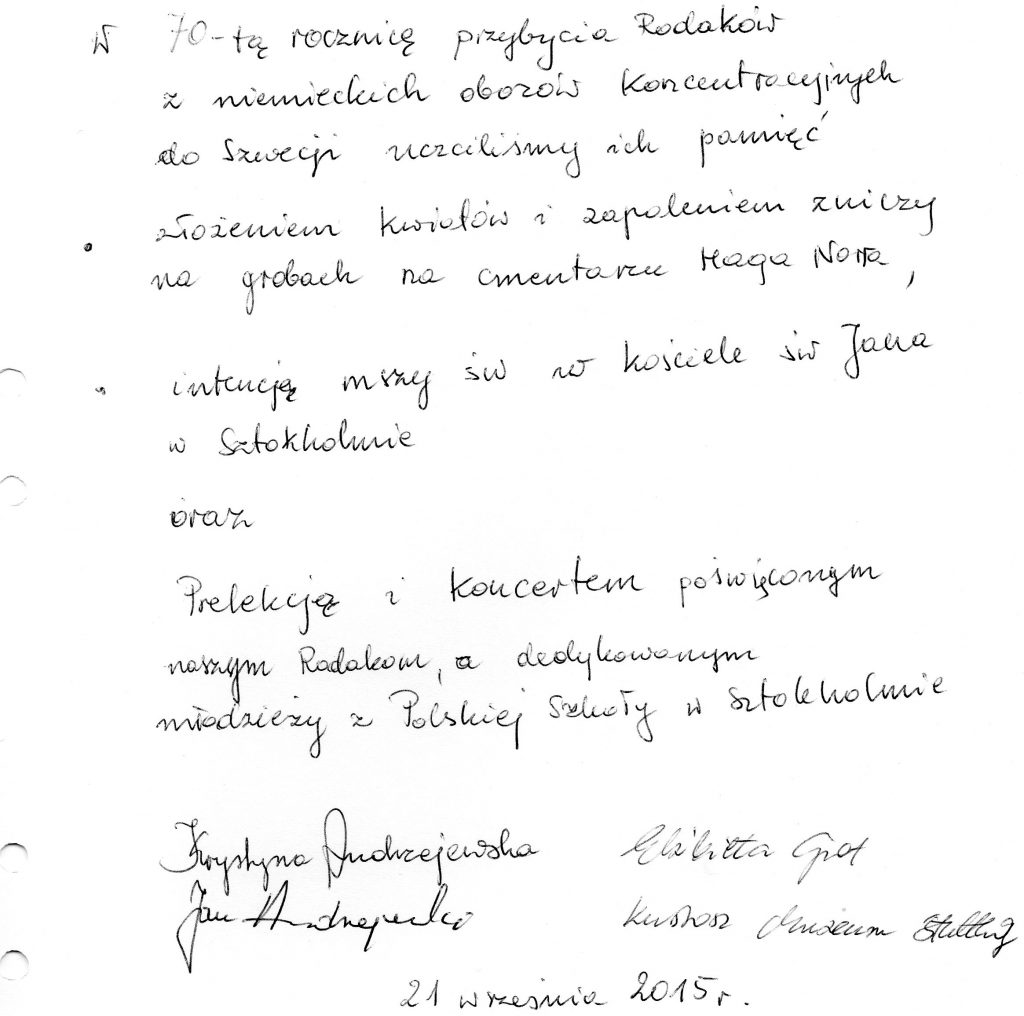 W 70-tą rocznicę przybycia Rodaków
z niemieckich obozów koncentracyjnych
do Szwecji uczciliśmy ich pamięć
• złożeniem kwiatów i zapaleniem zniczy
na grobach na cmentarzu Haga Norra,
• intencją mszy św w kościele św Jana
w Sztokholmie
oraz
Prelekcją i koncertem poświęconym
naszym Rodakom, a dedykowanym
młodzieży z Polskiej Szkoły w Sztokholmie
Krystyna Andrzejewska Elżbieta Grot
Jan Kustosz Muzeum Stutthof
21 września 2015 r.